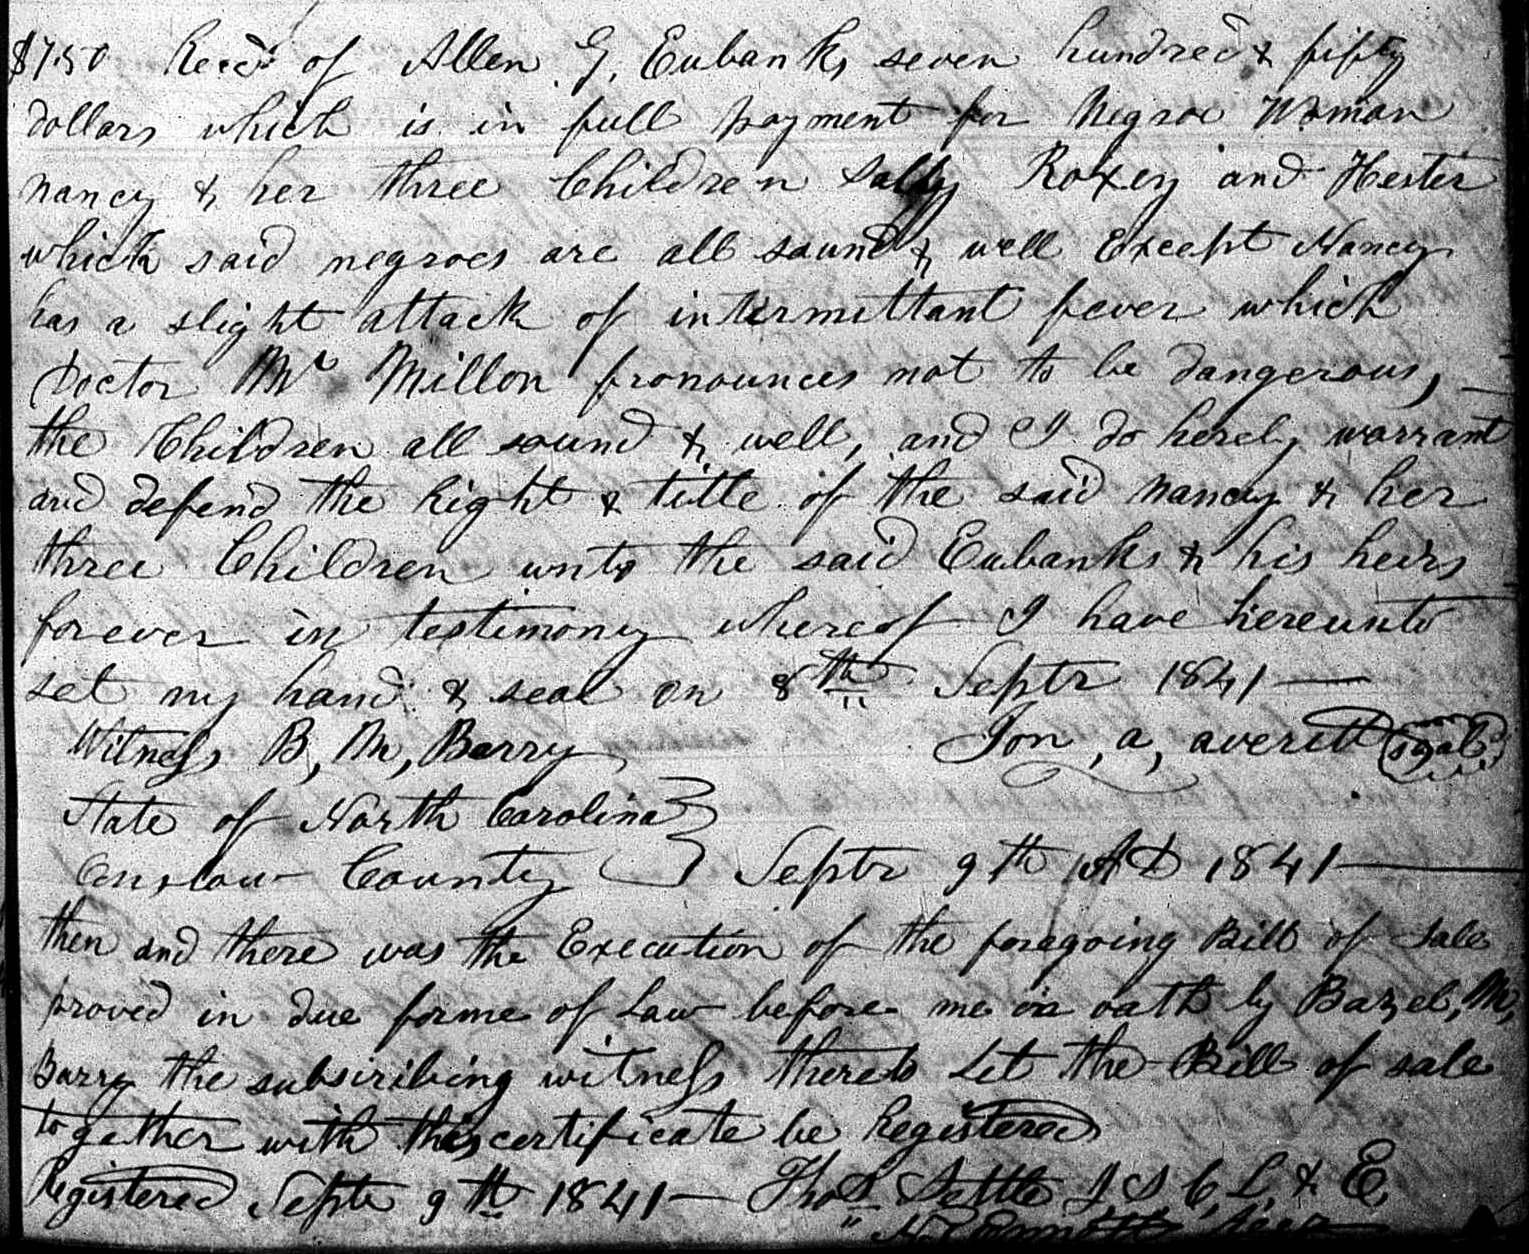 $750 Recd. of Allen G. Eubanks seven hundred & fifty
dollars which is in full payment for Negroe Woman
Nancy & her three Children Sally Roxey and Hester
which said negroes are all sound & well Except Nancy
has a slight attack of intermittant fever which
Doctor Mc Millon pronounces not to be dangerous,
the Children all sound & well, and I do hereby warrant
and defend the Right & title of the said Nancy & her
three Children unto the said Eubanks & his heirs
forever in testimony whereof I have hereunto
set my hand & seal on 8th Septr 1841—
Witness B, M, Barry Jon, a, averitt seal
State of North Carolina
Onslow County Septr 9th AD 1841—
then and there was the Execution of the foregoing Bill of Sale
proved in due forme of Law before me on oath by Bazel, M,
Barry the subsiribing witness thereto Let the Bill of sale
together with this certificate be Registered
Registered Septr 9th 1841— Thos Settle J S C L, & E